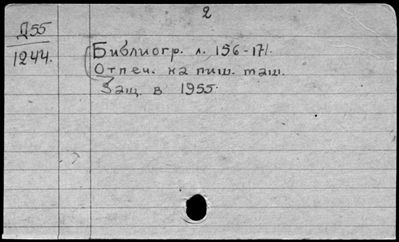 2
Д55
1244.
Библиогр. л. 156-171.
Отпеч. на пиш. маш.
Защ. в 1955.